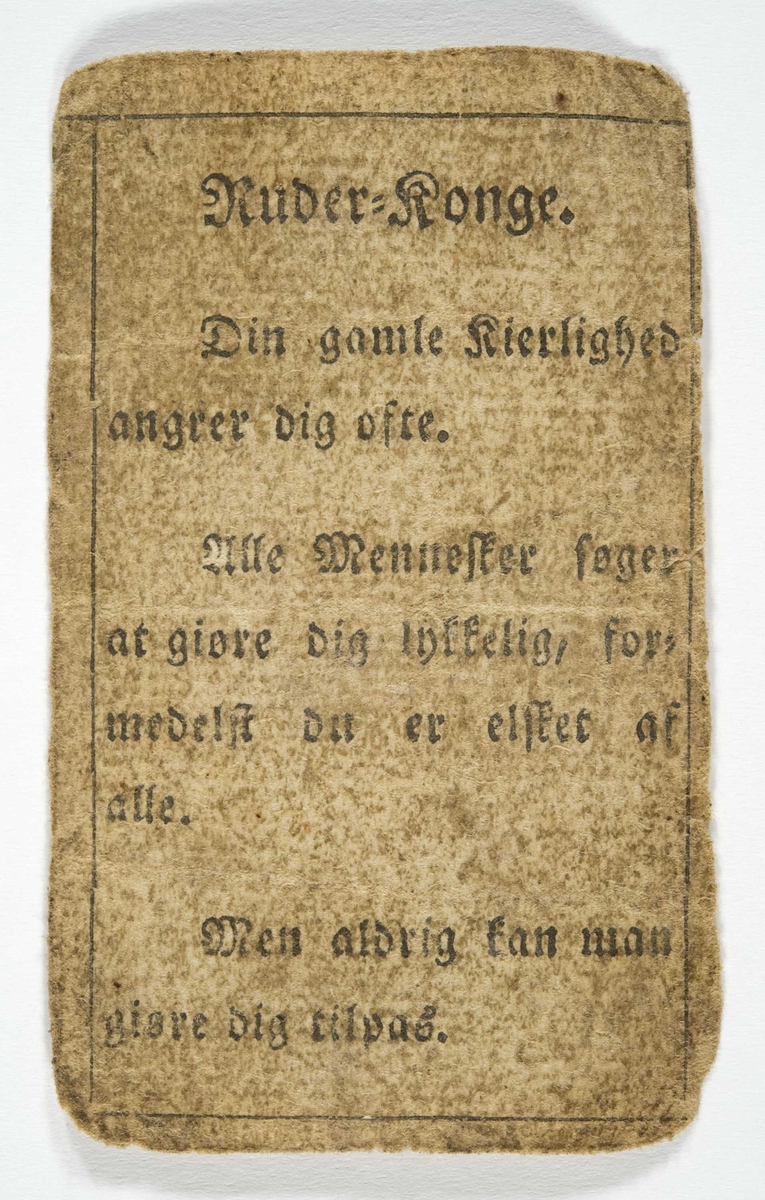 Ruder-Konge.
Din gamle Kierlighed
angrer dig ofte.
Alle Mennesker søger
at giøre dig lykkelig, for-
medelst du er elsket af
alle.
Men aldrig kan man
giøre dig tilpas.